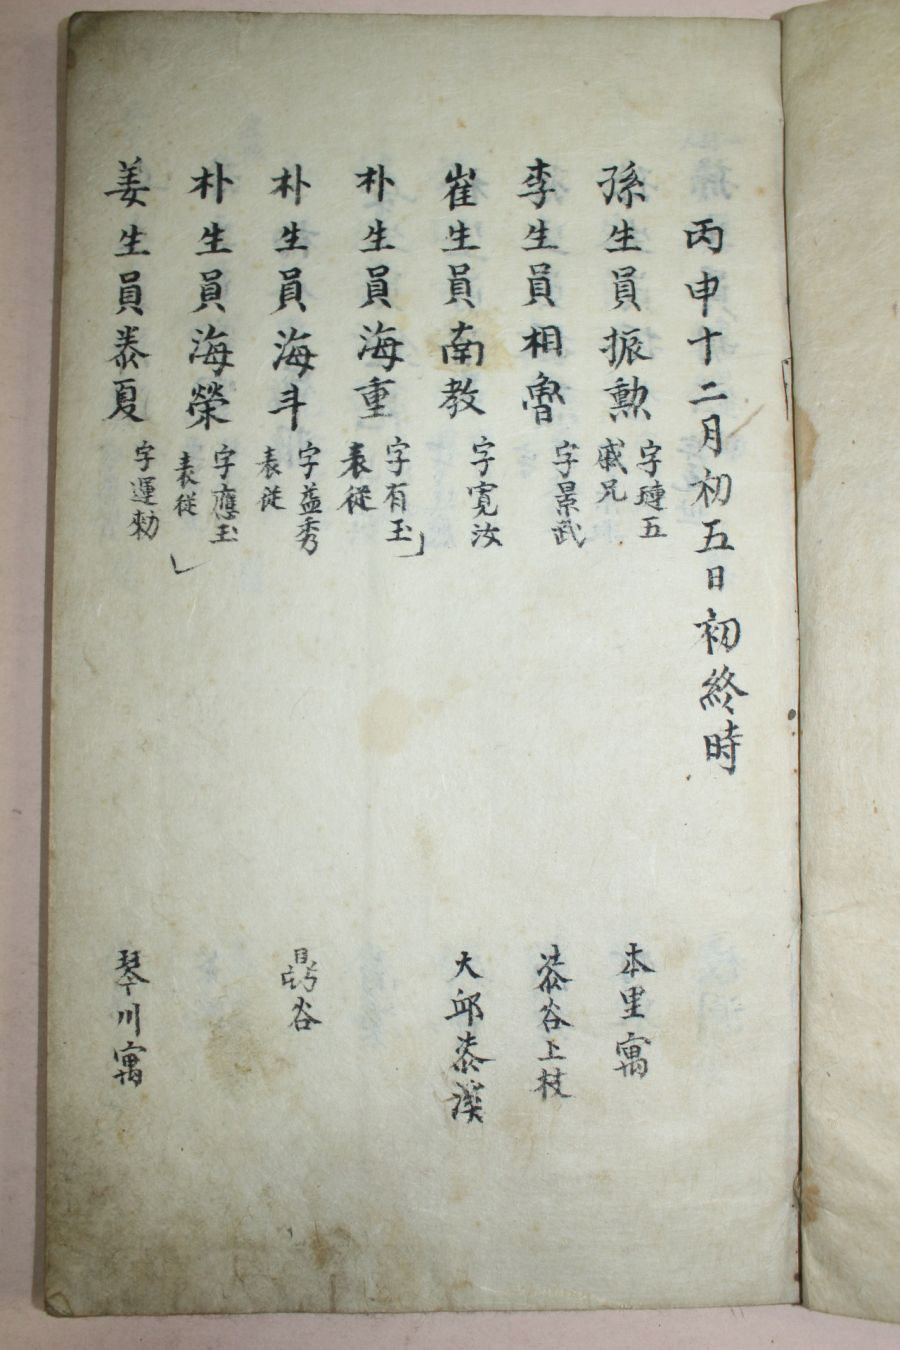 丙申十二月初五日初終時
孫生員振勲 字璉五 戚兄 本里寓
李生員相魯 字景武 谷上枝
崔生員南教 字寛汝 大邱漆溪
朴生員海重 字有玉 表從
朴生員海斗 字益秀 表從 谷
朴生員海榮 字應玉 表從
姜生員泰夏 字運勑 琴川寓